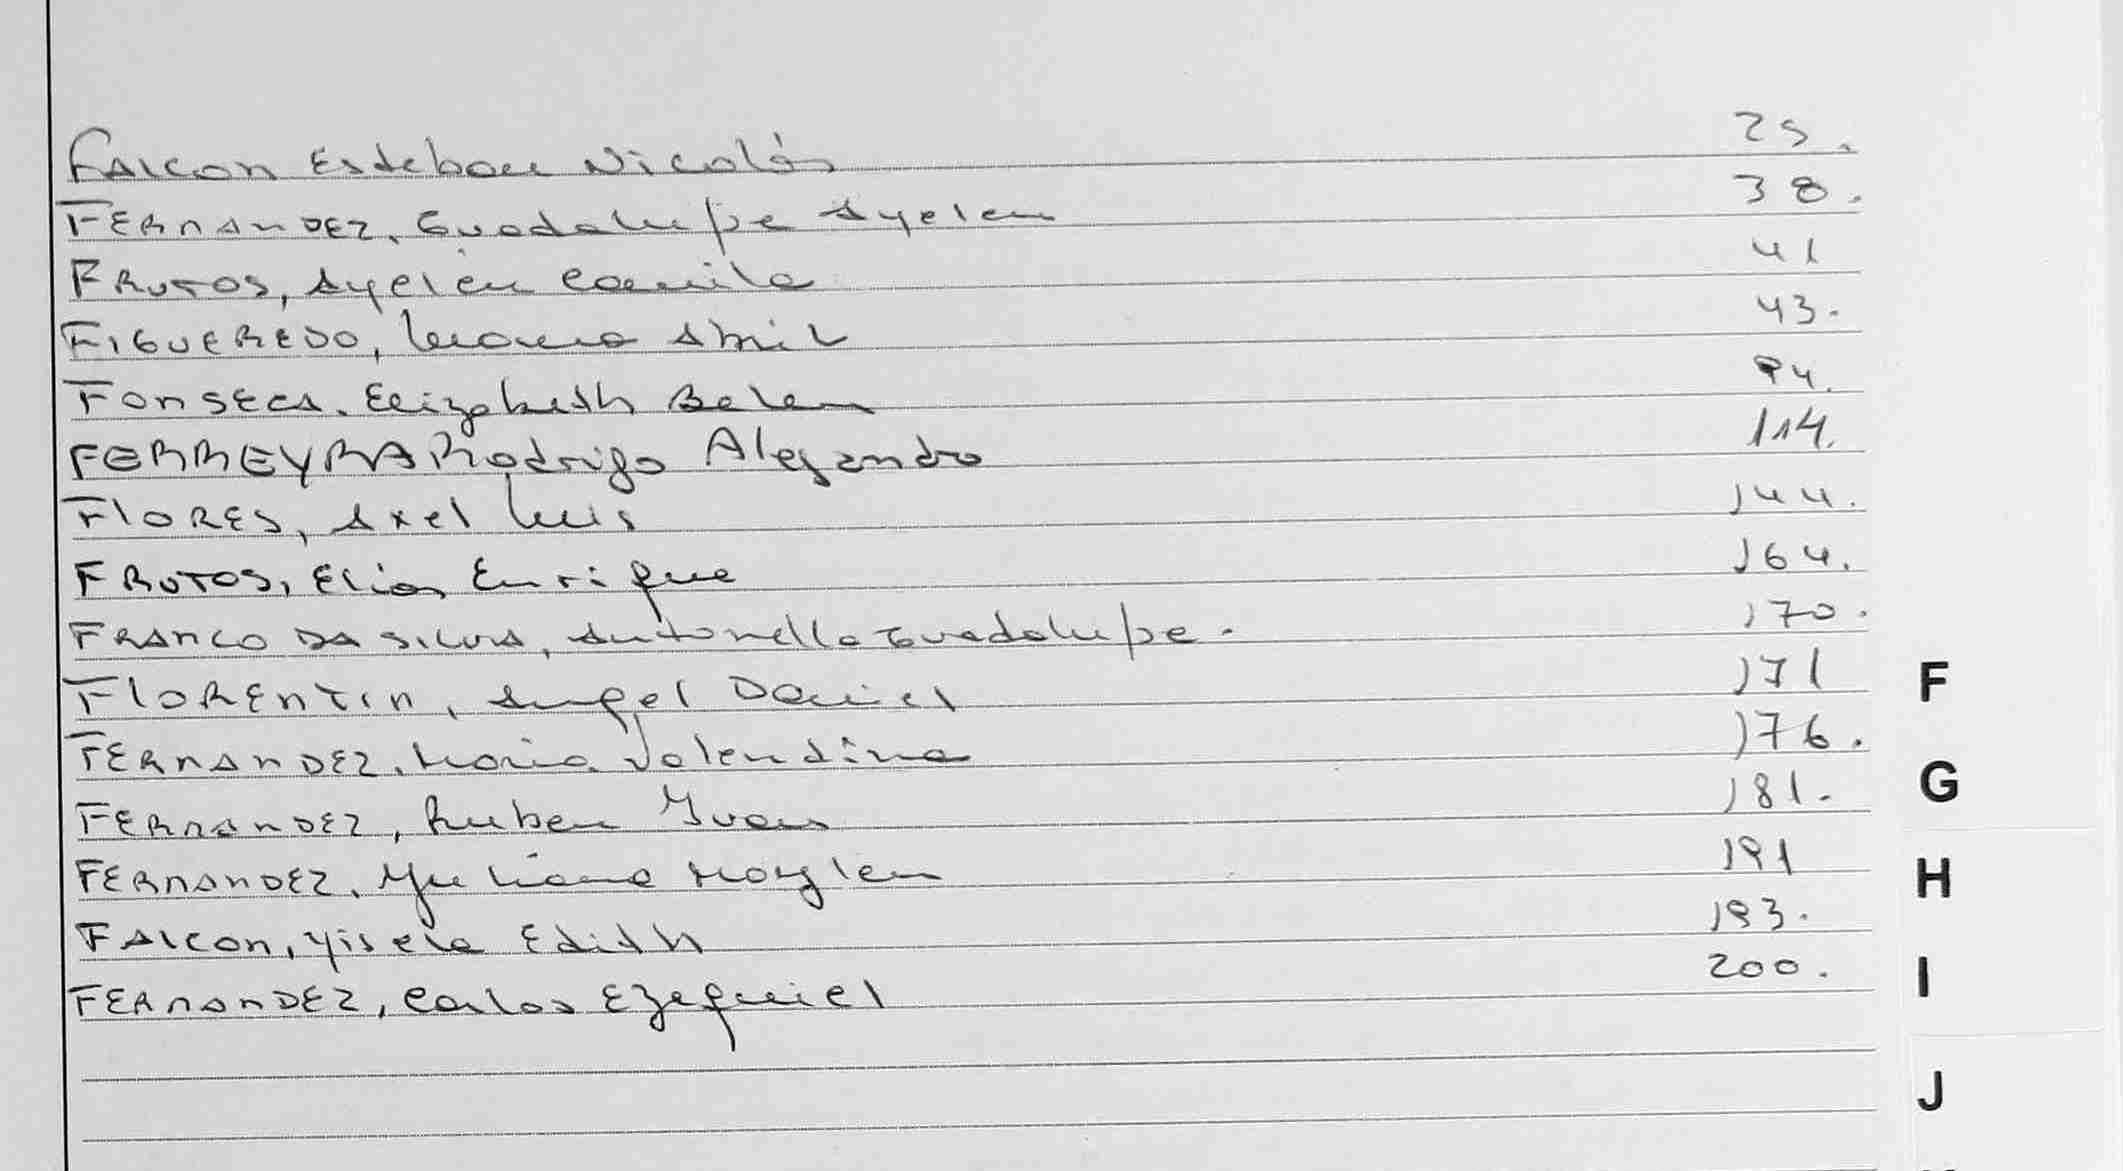 Falcon Esteban Nicolás 25.
FERNANDEZ, Guadalupe Ayelen 38.
FRUTOS, Ayelén Camila 41
FIGUEREDO, Morena Abril 43.
Fonseca, Elizabeth Belen 94.
FERREYRA Rodrigo Alejandro 114.
FLORES, Axel Luis 144.
FRUTOS, Elias Enrique 164.
FRANCO DA SILVA, Antonella Guadalupe. 170.
FLORENTIN, Angel Daniel 171
FERNANDEZ, Maria Valentina 176.
FERNANDEZ, Ruben Ivan 181.
FERNANDEZ, Yuliana Maylen 191
FALCON, Yisela Edith 193.
FERNANDEZ, Carlos Ezequiel 200.
F
G
H
I
J